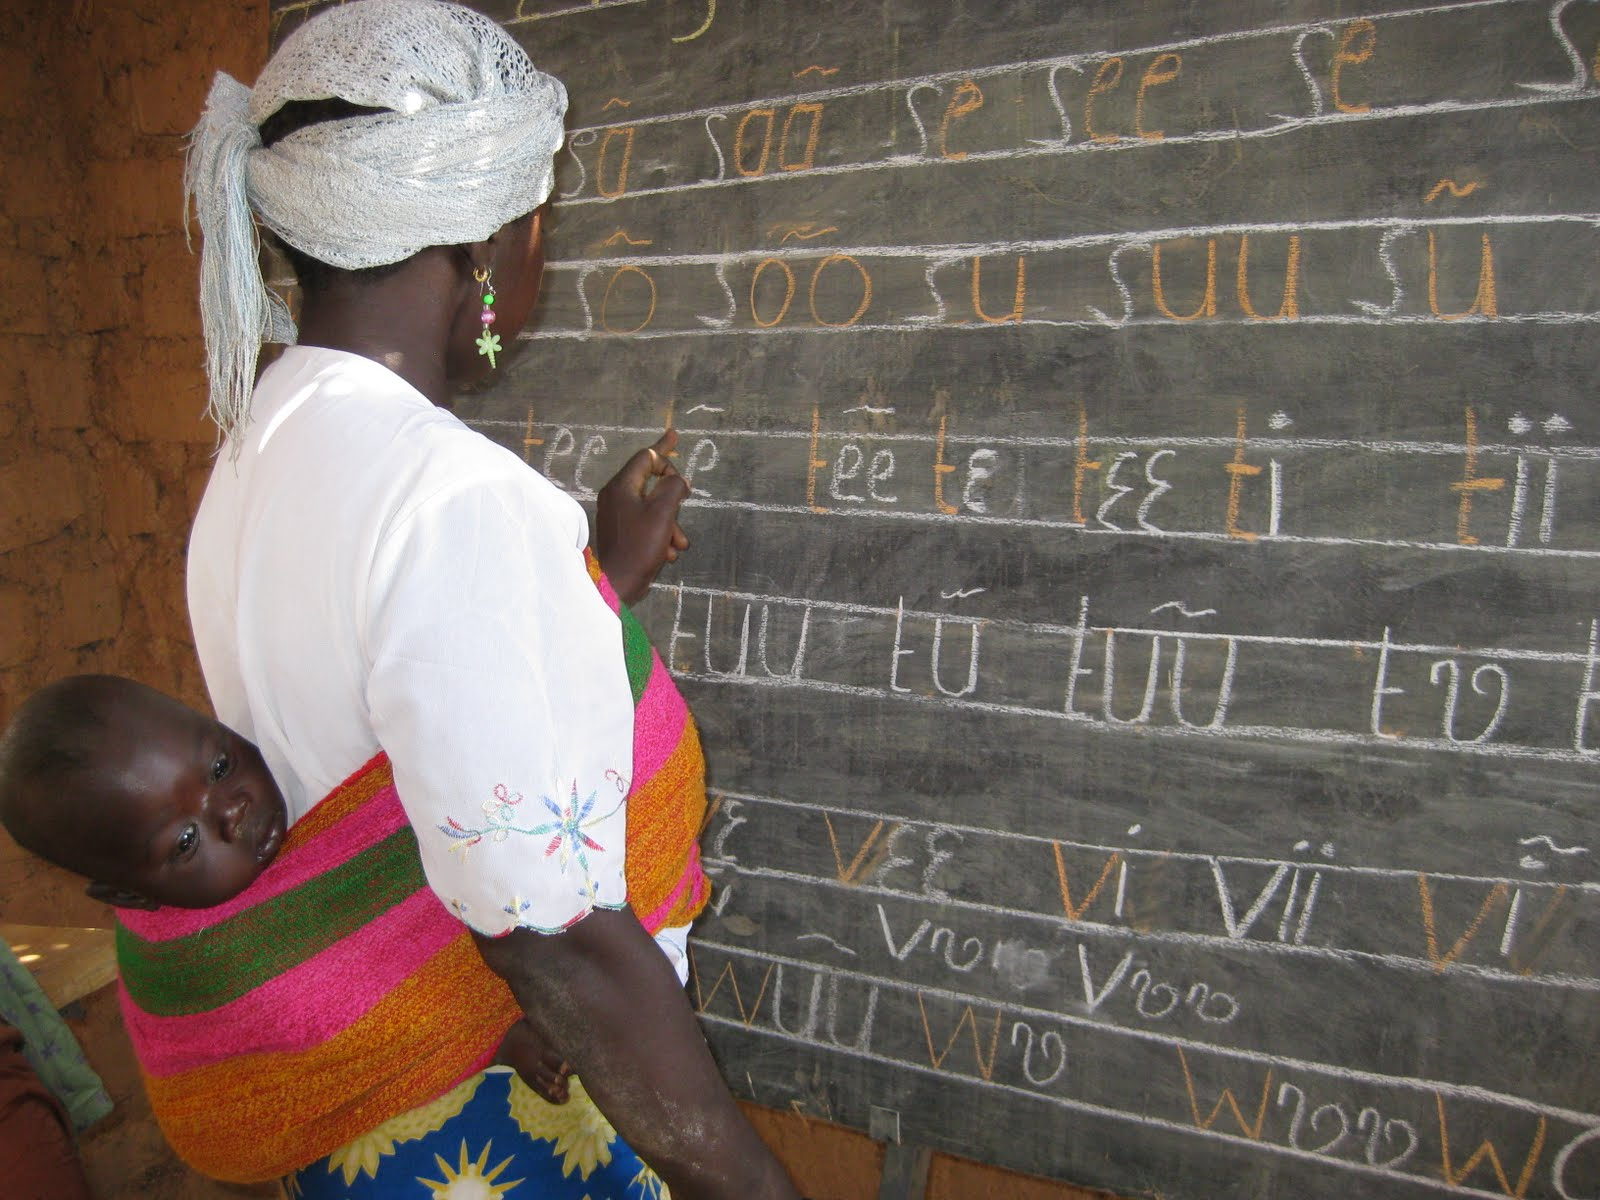 sã sãã se see sɛ
sõ sõõ su suu sũ
tee tẽ tẽe tɛ tɛɛ ti tii
tuu tũ tũu tʋ
ɛ vɛɛ vi vii vĩ
vʋ vʋʋ
wũu wʋ wʋʋ